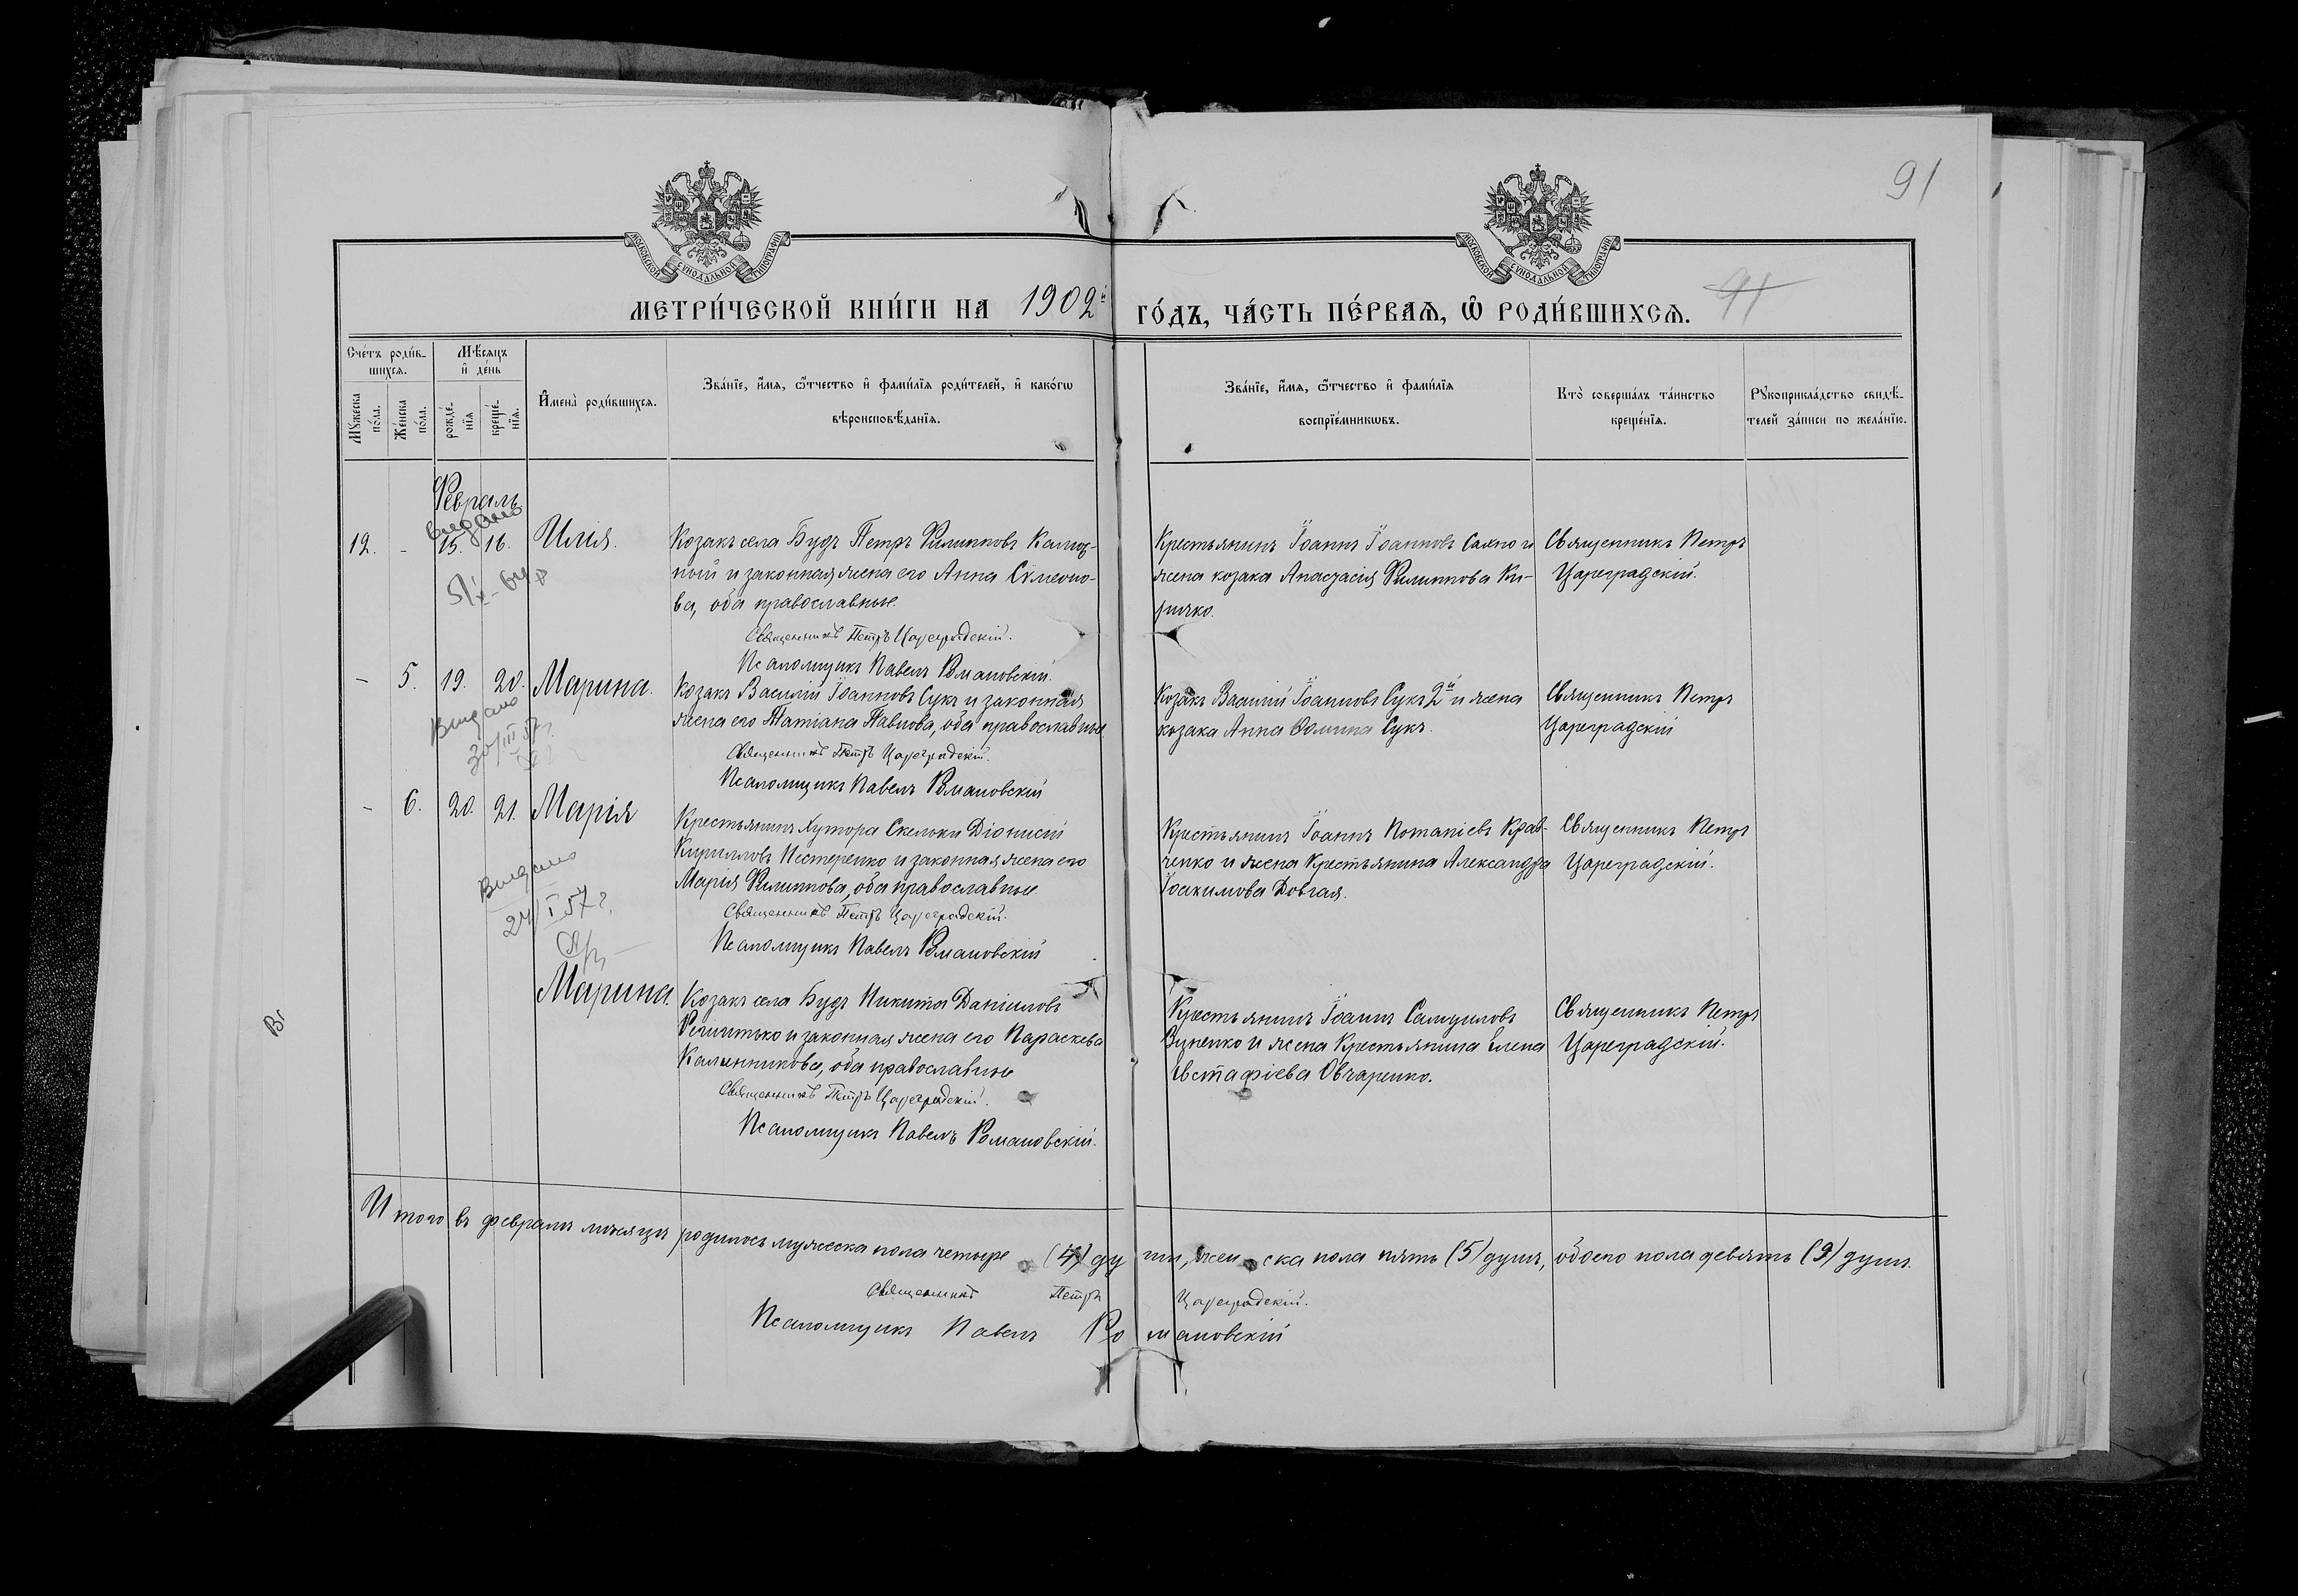 91
МОСКОВСКОЙ СѴНОДАЛЬНОЙ ТИПОГРАФІИ
МОСКОВСКОЙ СѴНОДАЛЬНОЙ ТИПОГРАФІИ
МЕТРИ́ЧЕСКОЙ КНИ́ГИ НА 1902й ГО́ДЪ, ЧА́СТЬ ПЕ́РВАѦ, Ѡ РОДИ́ВШИХСѦ. 91
Сче́тъ роди́в-
шихся.
Мꙋжеска
по́ла.
Же́нска
по́ла.
Мѣ́сяцъ
и҆ де́нь
рожде́-
нїя
креще́-
нїя.
И҆мена̀ роди́вшихся.
Зва́нїе, и҆́мя, ѻ҆́тчество и҆ фами́лїя роди́телей, и҆ како́гѡ
вѣроисповѣ́данїя.
Зва́нїе, и҆́мя, ѻ҆́тчество и҆ фами́лїя
воспрїе́мникѡвъ.
Кто̀ соверша́лъ та́инство
креще́нїя.
Рꙋкоприкла́дство свидѣ́-
телей за́писи по жела́нїю.
Февраль
видано
12. - 15. 16. Илія.
Козакъ села Будъ Петръ Филипповъ Калюж-
ный и законная жена его Анна Сѵмеоно-
ва, оба православные.
Священникъ Петръ Цареградскій.
Псаломщикъ Павелъ Романовскій.
Крестьянинъ Іоаннъ Іоанновъ Сахно и
жена козака Анастасія Филиппова Ки-
ричко.
Священникъ Петръ
Цареградскій.
- 5. 19. 20. Марина.
Видано
30/III 57
Козакъ Василій Іоанновъ Сукъ и законная
жена его Татіана Павлова, оба православные
Священникъ Петръ Цареградскій.
Псаломщикъ Павелъ Романовскій
Козакъ Василій Іоанновъ Сукъ 2й и жена
козака Анна Фомина Сукъ.
Священникъ Петръ
Цареградскій
- 6. 20. 21. Марія
Видано
24/I 57 г.
Крестьянинъ Хутора Скельки Діонисій
Кирилловъ Нестеренко и законная жена его
Марія Филиппова, оба православные
Священникъ Петръ Цареградскій.
Псаломщикъ Павелъ Романовскій
Крестьянинъ Іоаннъ Потапіевъ Крав-
ченко и жена Крестьянина Александра
Іоакимова Довгая.
Священникъ Петръ
Цареградскій.
Марина.
Козакъ села Будъ Никита Даніиловъ
Решитько и законная жена его Параскева
Калинникова, оба православные
Священникъ Петръ Цареградскій.
Псаломщикъ Павелъ Романовскій.
Крестьянинъ Іоаннъ Самуиловъ
Зуенко и жена Крестьянина Елена
Евстафіева Овчаренко.
Священникъ Петръ
Цареградскій.
Итого въ февралѣ мѣсяцѣ родилось мужеска пола четыре (4) души, женска пола пять (5) душъ, обоего пола девять (9) душъ.
Священникъ Петръ Цареградскій.
Псаломщикъ Павелъ Романовскій